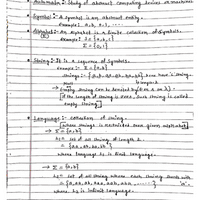 Automata :- Study of abstract computing devices or machines
• Symbol :- A symbol is an abstract entity.
example:- a, b, c, 1, ....
• Alphabet :- An alphabet is a finite collection of Symbols.
example:- Σ = {a, b, 1}
Σ = {0, 1}
• String :- It is a sequence of Symbols.
example:- Σ = {a, b}
Empty String can be denoted by
If the length of string is zero, such string is called
empty string
• Language :- collection of string.
→ Σ = {a, b}
L1 = Set of all string of length 2.
= {aa, ab, ba, bb}
where language L1 is finite language.
→ Σ = {a, b}
L2 = Set of all string where each string starts with
= {a, aa, ab, aaa, aab, aba, ......} 'a'.
where L2 is infinite language.